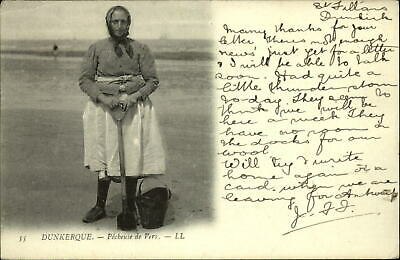 St Fillans
Dunkirk
Many thanks for your
letter theres not much
news just yet for a letter
& I will be able to talk
soon. Had quite a
little thunder storm
to day. They seem to
think we will be
here a week They
have no room in
the docks for our
wool
Will try & write
home again or a
card when we are
leaving for Antwerp
55 DUNKERQUE. — Pêcheuse de Vers. — LL